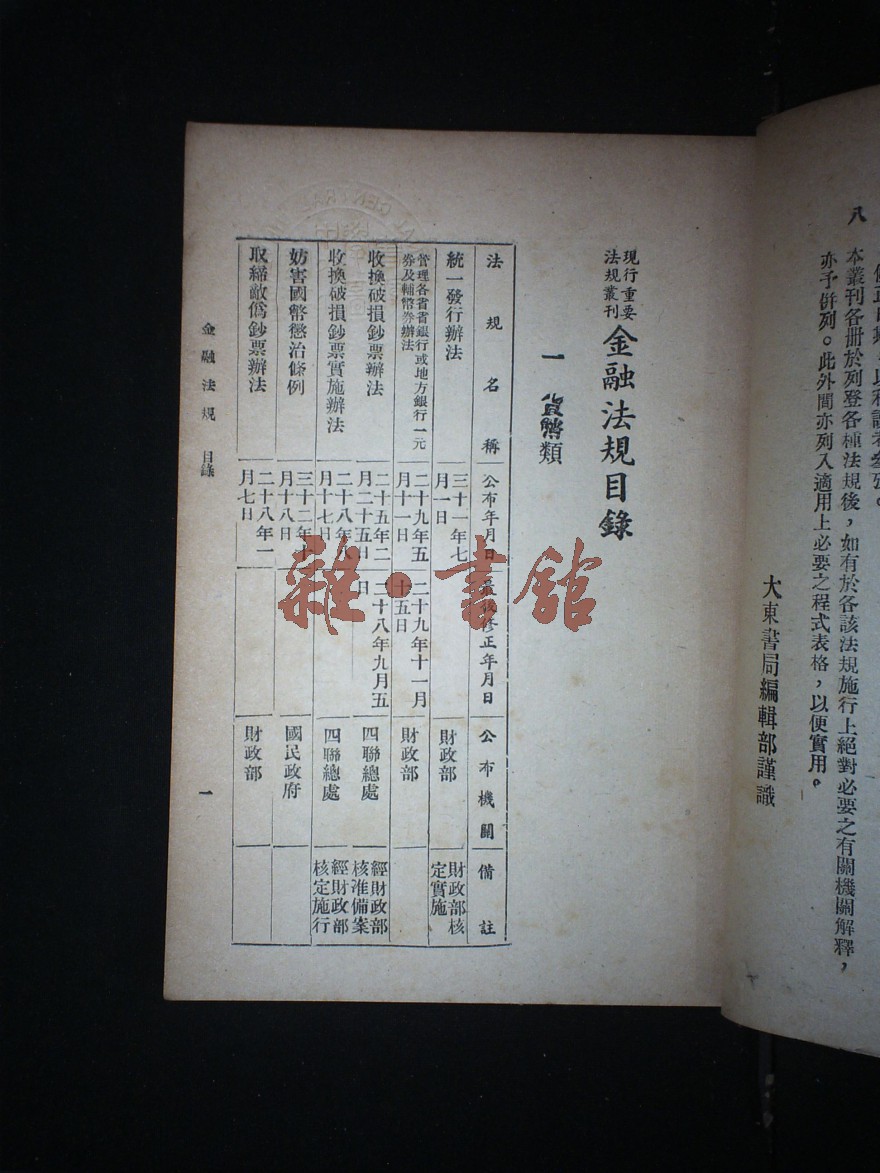 八
本叢刊各冊於列登各種法規後，如有於各該法規施行上絕對必要之有關機關解釋，
亦予併列。此外間亦列入適用上必要之程式表格，以便實用。
大東書局編輯部謹識
現行重要
法規叢刊
金融法規目錄
一 貨幣類
法規名稱 公布年月日 最後修正年月日 公布機關 備註
統一發行辦法 三十一年七月一日 財政部 財政部核定實施
管理各省省銀行或地方銀行一元券及輔幣券辦法 二十九年五月十一日 二十九年十一月十五日 財政部
收換破損鈔票辦法 二十五年二月二十五日 二十八年九月五日 四聯總處 經財政部核准備案
收換破損鈔票實施辦法 二十八年 月十七日 四聯總處 經財政部核定施行
妨害國幣懲治條例 三十二年十月十八日 國民政府
取締敵偽鈔票辦法 二十八年一月七日 財政部
金融法規 目錄
一
雜·書館